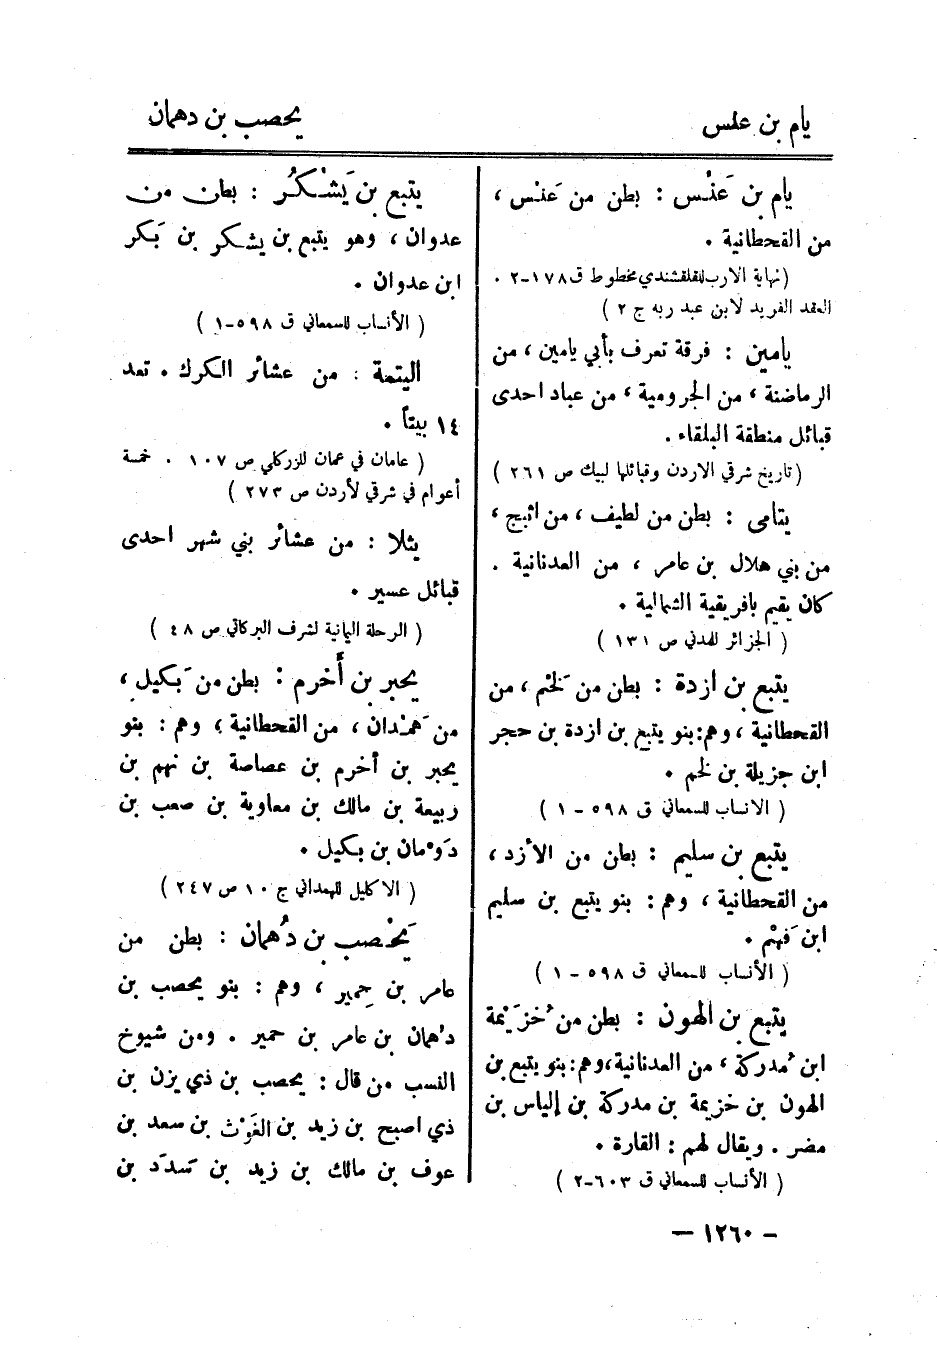 يام بن علس
يحصب بن دهمان
يام بن عَنْس : بطن من عَنْس ،
من القحطانية .
(نهاية الارب للقلقشندي مخطوط ق ١٧٨-٢ .
العقد الفريد لابن عبد ربه ج ٢ )
يامين : فرقة تعرف بأبي يامين ، من
الرماضنة ، من الجرومية ، من عباد احدى
قبائل منطقة البلقاء .
(تاريخ شرقي الاردن وقبائلها لبيك ص ٢٦١ )
يتامى : بطن من لطيف ، من اثبج ،
من بني هلال بن عامر ، من العدنانية .
كان يقيم بافريقية الشمالية .
( الجزائر للمدني ص ١٣١ )
يتبع بن ازدة : بطن من لَخْم ، من
القحطانية ، وهم : بنو يتبع بن ازدة بن حجر
ابن جزيلة بن لخم .
( الانساب للسمعاني ق ٥٩٨ - ١ )
يتبع بن سليم : بطن من الأزد ،
من القحطانية ، وهم : بنو يتبع بن سليم
ابن فَهْم .
( الأنساب للسمعاني ق ٥٩٨ - ١ )
يتبع بن الهون : بطن من خُزَيمة
ابن مُدركة ، من العدنانية ، وهم : بنو يتبع بن
الهون بن خزيمة بن مدركة بن إلياس بن
مضر . ويقال لهم : القارة .
( الأنساب للسمعاني ق ٦٠٣-٢ )
يتبع بن يَشْكُر : بطن من
عدوان ، وهو يتبع بن يشكر بن بَكر
ابن عدوان .
( الأنساب للسمعاني ق ٥٩٨-١ )
اليتمة : من عشائر الكرك . تعد
١٤ بيتاً .
( عامان في عمان للزركلي ص ١٠٧ . خمسة
أعوام في شرقي لأردن ص ٢٧٣ )
يثلا : من عشائر بني شهر احدى
قبائل عسير .
( الرحلة اليمانية لشرف البركاتي ص ٤٨ )
يحبر بن أَخرم : بطن من بَكيل ،
من هَمْدان ، من القحطانية ، وهم : بنو
يحبر بن أخرم بن عصاصة بن نهم بن
ربيعة بن مالك بن معاوية بن صعب بن
دَوْمان بن بكيل .
( الاكليل للهمداني ج ١٠ ص ٢٤٧ )
يَحْصب بن دُهمان : بطن من
عامر بن حِمير ، وهم : بنو يحصب بن
دُهمان بن عامر بن حمير . ومن شيوخ
النسب من قال : يحصب بن ذي يزن بن
ذي اصبح بن زيد بن الغَوْث بن سعد بن
عوف بن مالك بن زيد بن سَدَد بن
- ١٢٦٠ -